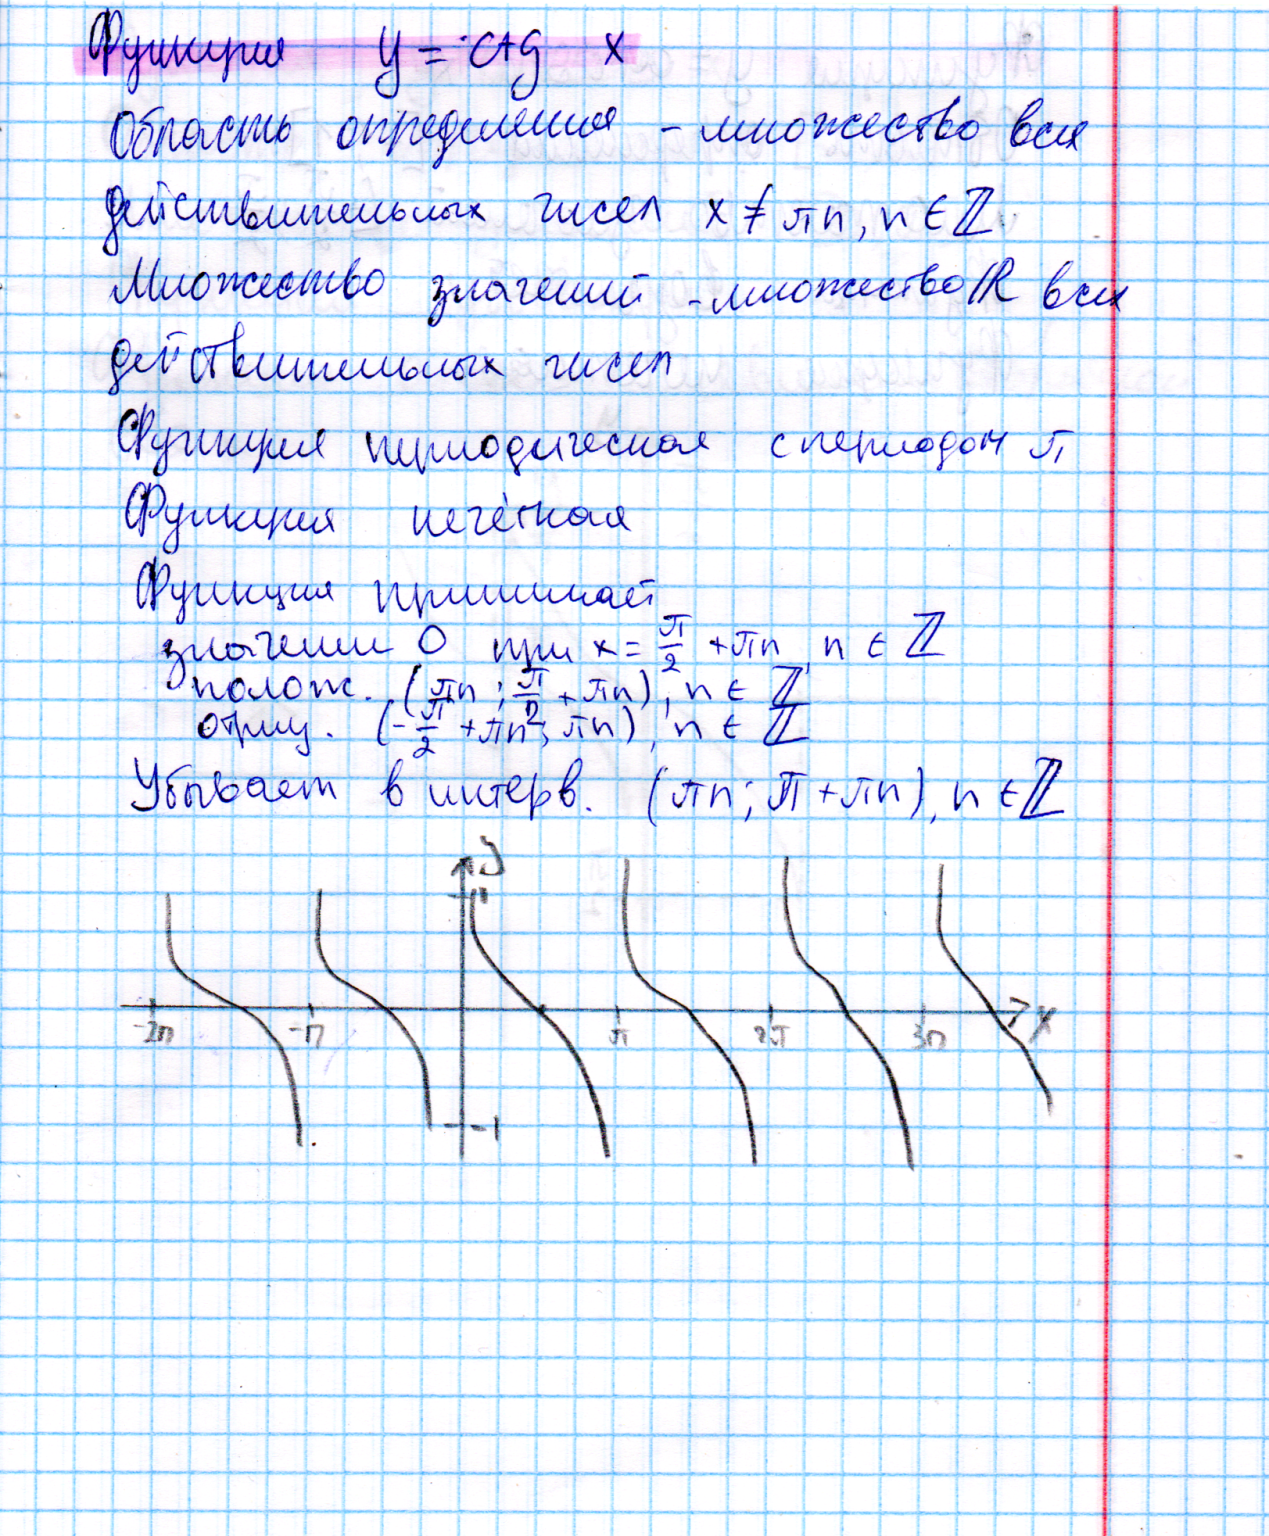 Функция y = ctg x
Область определения - множество всех
действительных чисел x ≠ πn, n ∈ ℤ.
Множество значений - множество ℝ всех
действительных чисел
Функция периодическая с периодом π
Функция нечётная
Функция принимает
значении 0 при x = π/2 + πn, n ∈ ℤ
полож. (πn; π/2 + πn), n ∈ ℤ
отриц. (-π/2 + πn; πn), n ∈ ℤ
Убывает в интерв. (πn; π + πn), n ∈ ℤ
y
-2π -π π 2π 3π x
-1